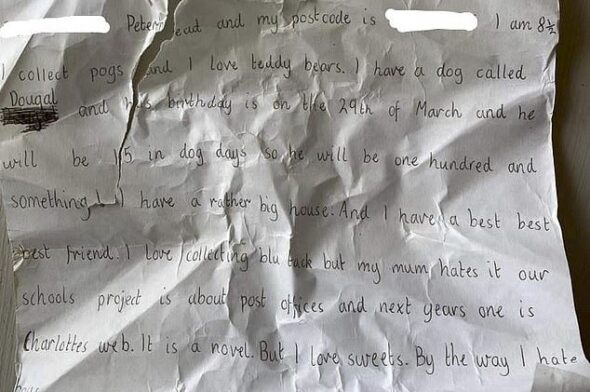 Peterhead and my postcode is I am 8½
I collect pogs and I love teddy bears. I have a dog called
Dougal
and his birthday is on the 29th of March and he
will be 15 in dog days so he will be one hundred and
something! I have a rather big house. And I have a best best
best friend. I love collecting blu tack but my mum hates it our
schools project is about post offices and next years one is
Charlottes web. It is a novel. But I love sweets. By the way I hate